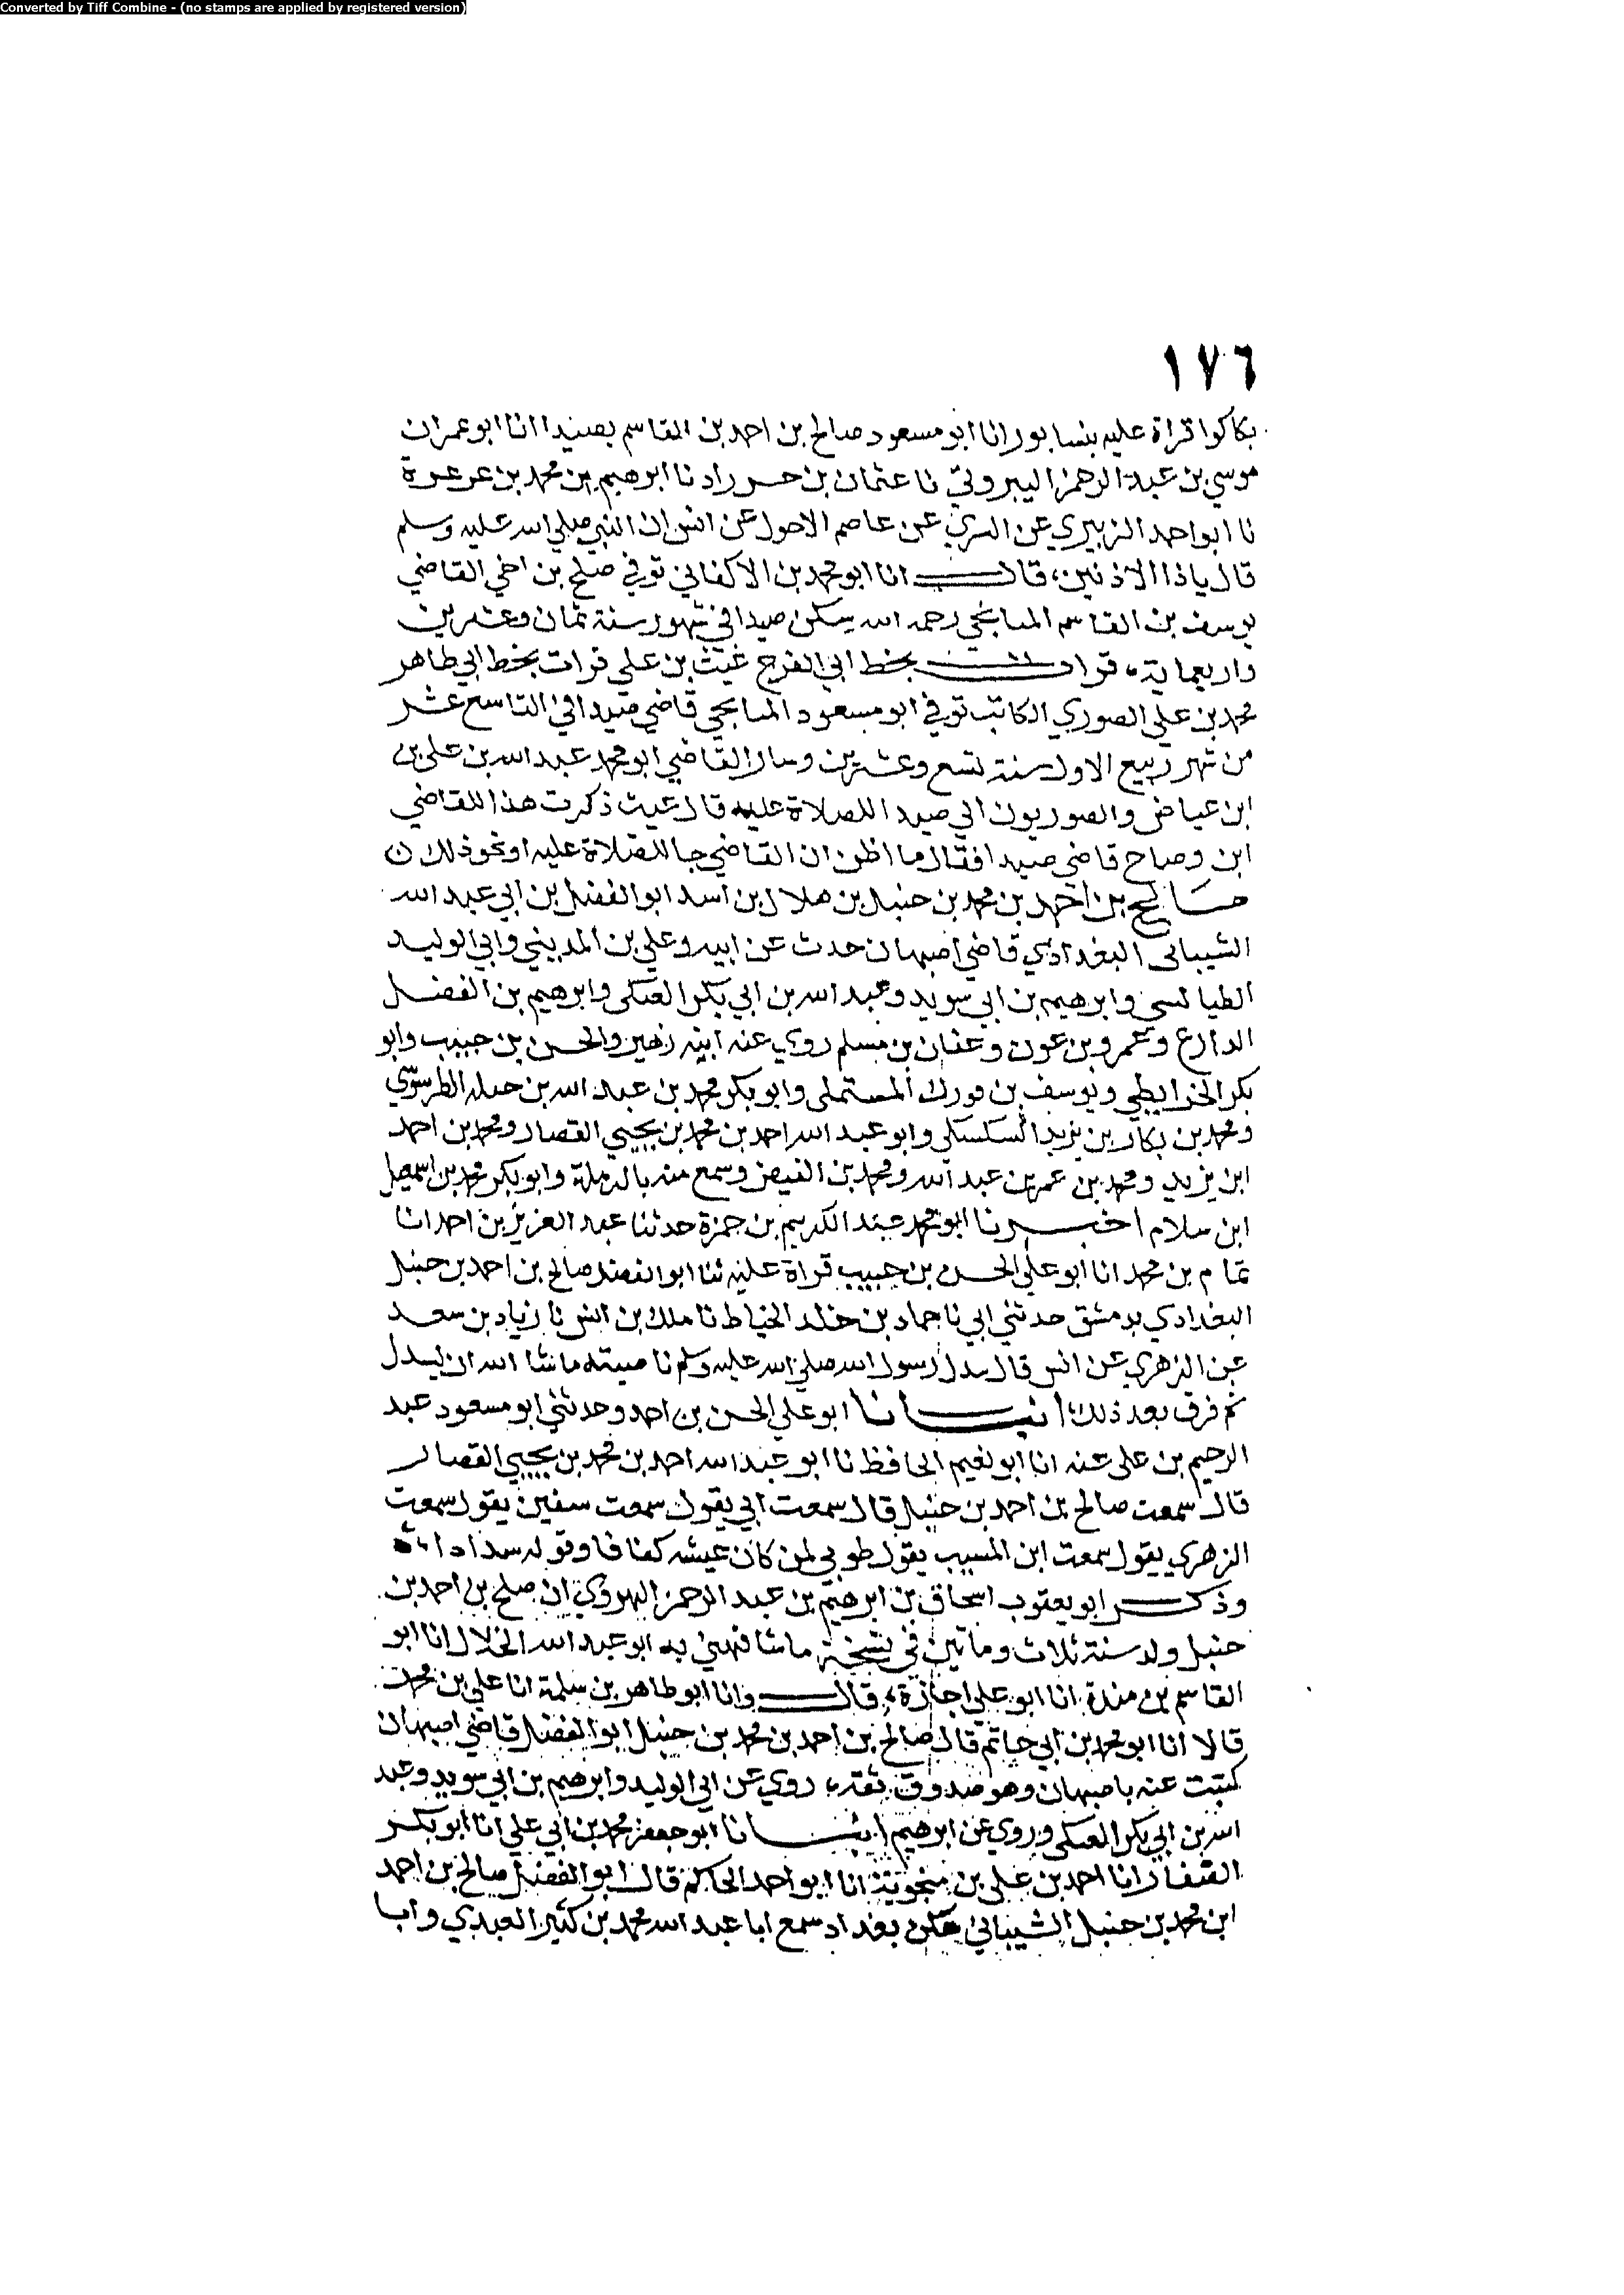 Converted by Tiff Combine - (no stamps are applied by registered version)
١٧٦
بكاكوا قراة عليه بنسابور انا ابو مسعود صالح بن احمد بن القاسم بصيدا انا ابو عمران
موسي بن عبد الرحمن البيروتي نا عثمان بن حرزاد نا ابرهيم بن محمد بن عرعرة
نا ابو احمد الزبيري عن السري عن عاصم الاحول عن انس ان النبي صلي الله عليه وسلم
قال ياذا الاذنين، قال انا ابو محمد بن الاكفاني توفي صلح بن اخي القاضي
يوسف بن القاسم الميانجي رحمه الله يسكن صيدا في شهور سنة ثمان وعشرين
واربعماية، قرات بخط ابي الفرج غيث بن علي قرات بخط ابي طاهر
محمد بن علي الصوري الكاتب توفي ابو مسعود الميانجي قاضي صيدا في التاسع عشر
من شهر ربيع الاول سنة تسع وعشرين وسار القاضي ابو محمد عبد الله بن علي بن
ابن عياض والصوريون الي صيدا للصلاة عليه قال غيث ذكرت هذا للقاضي
ابن وضاح قاضي صيدا فقال ما اظن ان القاضي جا للصلاة عليه او نحو ذلك ن
صالح بن احمد بن محمد بن حنبل بن هلال بن اسد ابو الفضل بن ابي عبد الله
الشيباني البغدادي قاضي اصبهان حدث عن ابيه وعلي بن المديني وابي الوليد
الطيالسي وابرهيم بن ابي سويد وعبد الله بن ابي بكر العتكي وابرهيم بن الفضل
الدارع وعمرو بن عون وعفان بن مسلم روي عنه ابنه زهير والحسن بن حبيب وابو
بكر الخرايطي ويوسف بن فورك المستملي وابو بكر محمد بن عبد الله بن حبله الطرسوسي
ومحمد بن بكار بن يزيد السكسكي وابو عبد الله احمد بن محمد بن يحيي القصار ومحمد بن احمد
ابن يزيد ومحمد بن عمر بن عبد الله ومحمد بن الفيض وسمع منه بالرملة وابو بكر محمد بن اسمعيل
ابن سلام اخبرنا ابو محمد عبد الكريم بن حمزة حدثنا عبد العزيز بن احمد انا
تمام بن محمد انا ابو علي الحسن بن حبيب قراة عليه ثنا ابو الفضل صالح بن احمد بن حنبل
البغدادي بدمشق حدثني ابي نا حماد بن خلد الخياط نا ملك بن انس نا زياد بن سعد
عن الزهري عن انس قال سدل رسول الله صلي الله عليه وسلم ناصيته ما شا الله ان يسدل
ثم فرق بعد ذلك، انبانا ابو علي الحسن بن احمد وحدثني ابو مسعود عبد
الرحيم بن علي عنه انا ابو نعيم الحافظ نا ابو عبد الله احمد بن محمد بن يحيي القصار
قال سمعت صالح بن احمد بن حنبل قال سمعت ابي يقول سمعت سفين يقول سمعت
الزهري يقول سمعت ابن المسيب يقول طوبي لمن كان عيشه كفافا وقوله سدادا
وذكر ابو يعقوب اسحاق بن ابرهيم بن عبد الرحمن الهروي ان صلح بن احمد بن
حنبل ولد سنة ثلاث ومأتين في نسخة ما شافهني به ابو عبد الله الخلال انا ابو
القاسم بن مندة انا ابو علي اجازة، قال وانا ابو طاهر بن سلمة انا علي بن محمد
قالا انا ابو محمد بن ابي حاتم قال صالح بن احمد بن محمد بن حنبل ابو الفضل قاضي اصبهان
كتبت عنه باصبهان وهو صدوق ثقه، روي عن ابي الوليد وابرهيم بن ابي سويد وعبد
الله بن ابي بكر العتكي وروي عن ابرهيم انبانا ابو جعفر محمد بن ابي علي انا ابو بكر
الصفار انا احمد بن علي بن منجويه انا ابو احمد الحاكم قال ابو الفضل صالح بن احمد
ابن محمد بن حنبل الشيباني سكن بغداد سمع ابا عبد الله محمد بن كثير العبدي وابا